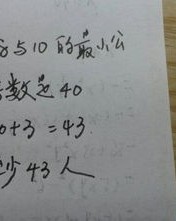 与10的最小公
数是40
+3=43.
少43人